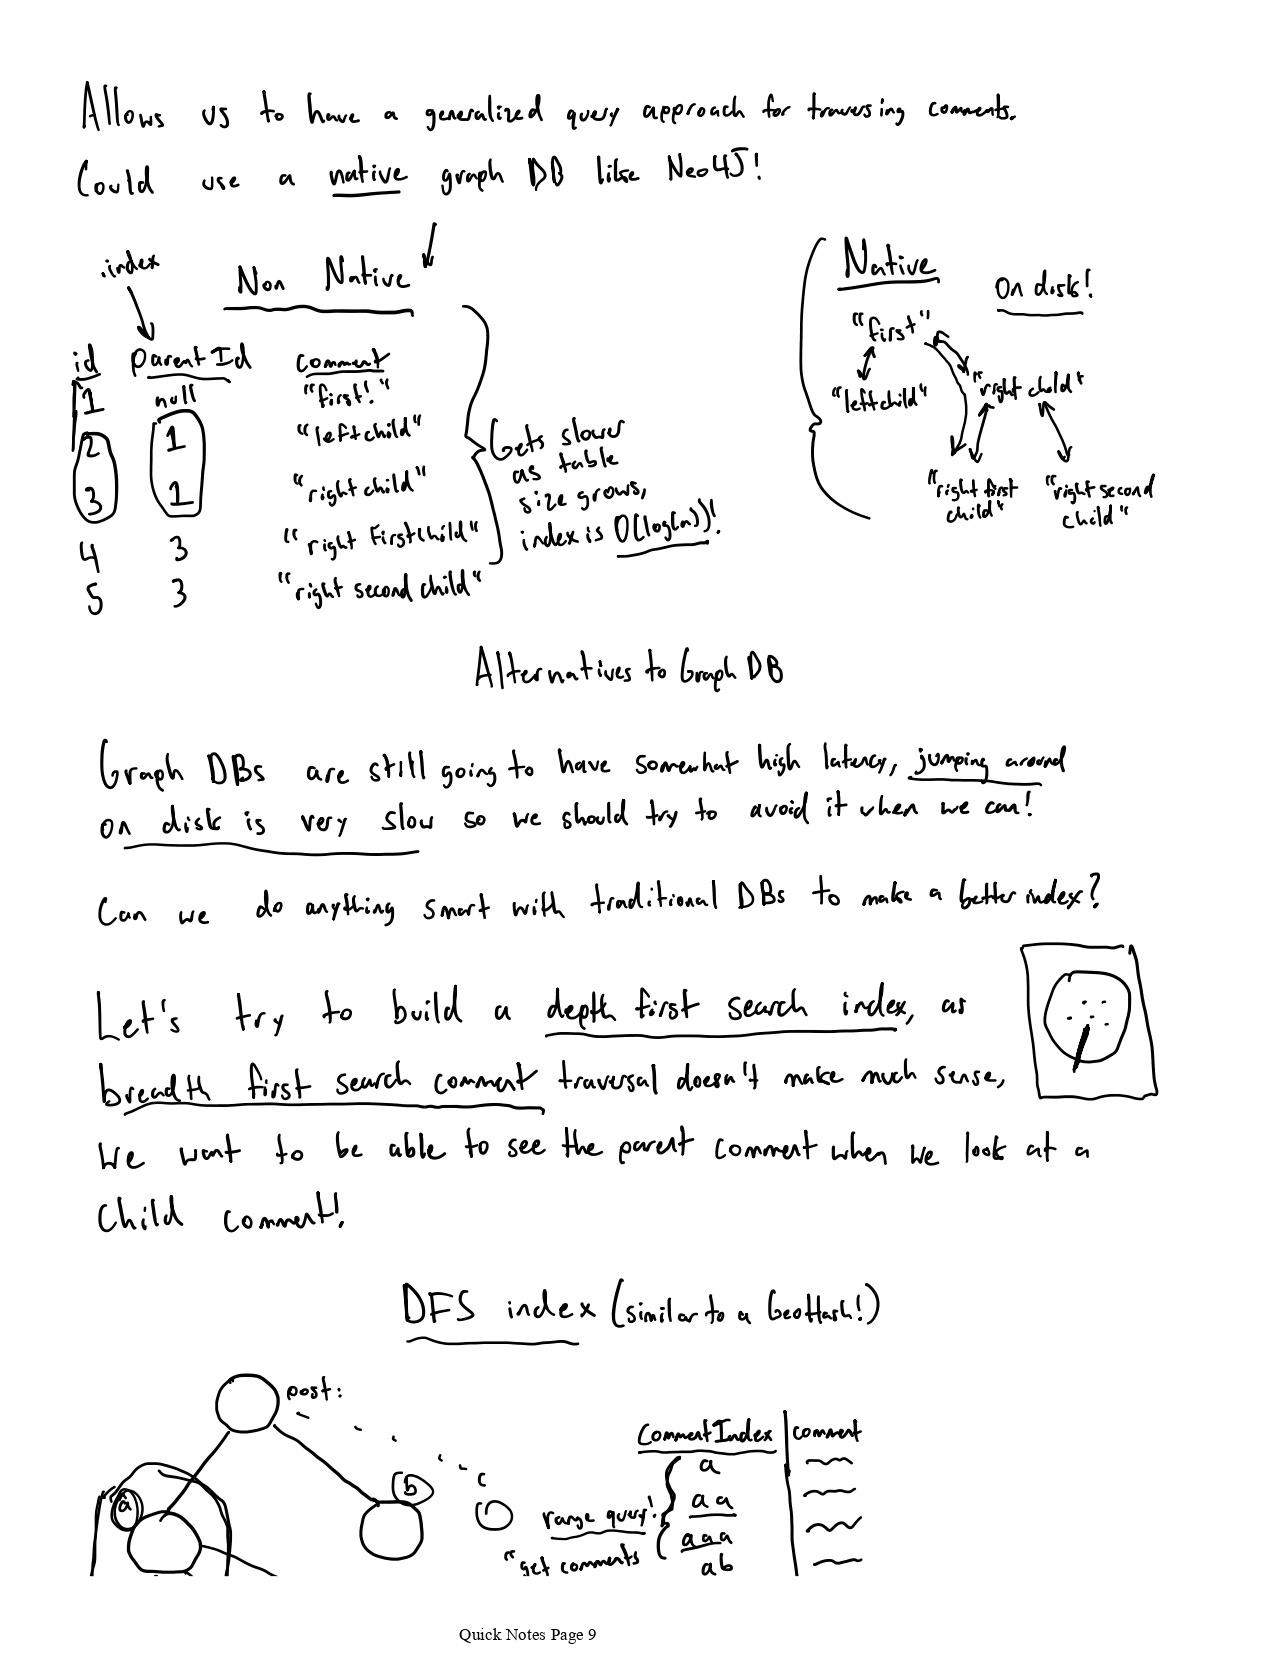 Allows us to have a generalized query approach for traversing comments.
Could use a native graph DB like Neo4J!
index
Non Native
id parentId comment
1 null "first!"
2 1 "leftchild"
3 1 "right child"
4 3 "right Firstchild"
5 3 "right second child"
Gets slower
as table
size grows,
index is O(log(n))!
Native
On disk!
"first"
"leftchild" "right child"
"right first
child"
"right second
child"
Alternatives to Graph DB
Graph DBs are still going to have somewhat high latency, jumping around
on disk is very slow so we should try to avoid it when we can!
Can we do anything smart with traditional DBs to make a better index?
Let's try to build a depth first search index, as
breadth first search comment traversal doesn't make much sense,
we want to be able to see the parent comment when we look at a
child comment!
DFS index (similar to a GeoHash!)
post:
a
b
c
range query!
"get comments
CommentIndex comment
a
aa
aaa
ab
Quick Notes Page 9